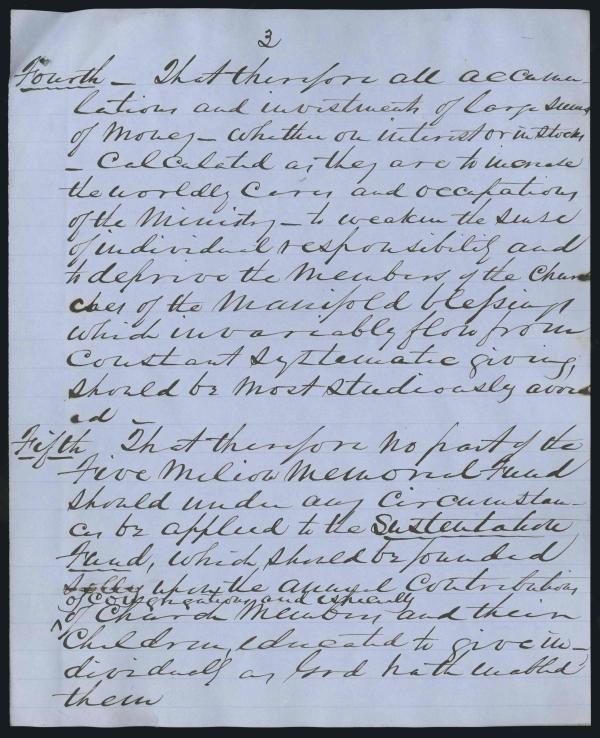 3
Fourth – That therefore all accumu-
lations and investments of large sums
of Money – whether on interest or in stocks
– Calculated as they are to increase
the worldly Cares and occupations
of the Ministry – to weaken the sense
of individual responsibility and
to deprive the Members of the Chur
ches of the Manifold blessings
which invariably flow from
Constant Systematic giving,
should be most studiously avoid
ed –
Fifth – That therefore no part of the
Five Milion Memorial Fund
should under any Circumstan-
ces be applied to the Sustentation
Fund, which, should be founded
solely upon the annual Contributions
of Congregations and especially
of Church Members and their
Children, educated to give in-
dividually as God hath enabled
them